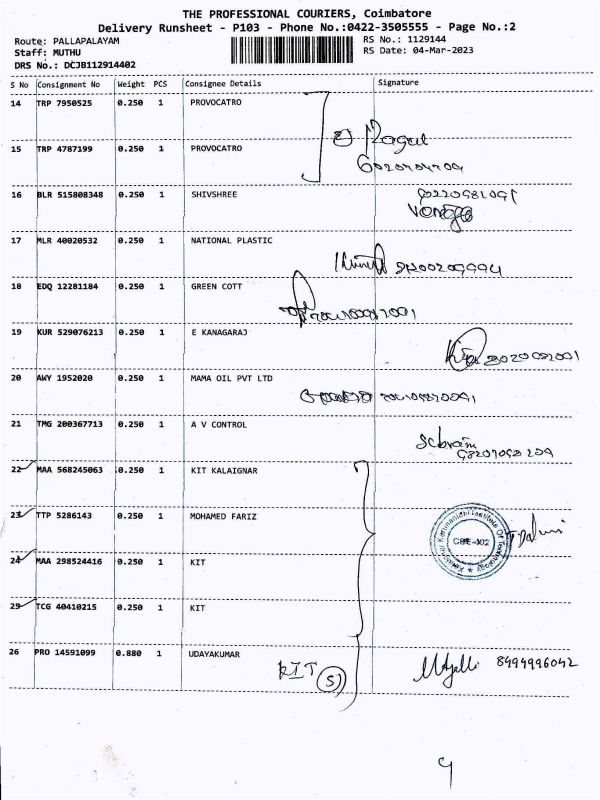 THE PROFESSIONAL COURIERS, Coimbatore
Delivery Runsheet - P103 - Phone No.:0422-3505555 - Page No.:2
Route: PALLAPALAYAM RS No.: 1129144
Staff: MUTHU RS Date: 04-Mar-2023
DRS No.: DCJB112914402
S No Consignment No Weight PCS Consignee Details Signature
14 TRP 7950525 0.250 1 PROVOCATRO
15 TRP 4787199 0.250 1 PROVOCATRO
16 BLR 515808348 0.250 1 SHIVSHREE
17 MLR 40020532 0.250 1 NATIONAL PLASTIC
18 EDQ 12281184 0.250 1 GREEN COTT
19 KUR 529076213 0.250 1 E KANAGARAJ
20 AWY 1952020 0.250 1 MAMA OIL PVT LTD
21 TMG 200367713 0.250 1 A V CONTROL
22 MAA 568245063 0.250 1 KIT KALAIGNAR
23 TTP 5286143 0.250 1 MOHAMED FARIZ
24 MAA 298524416 0.250 1 KIT
25 TCG 40410215 0.250 1 KIT
26 PRO 14591099 0.880 1 UDAYAKUMAR
KIT 5 8499996042